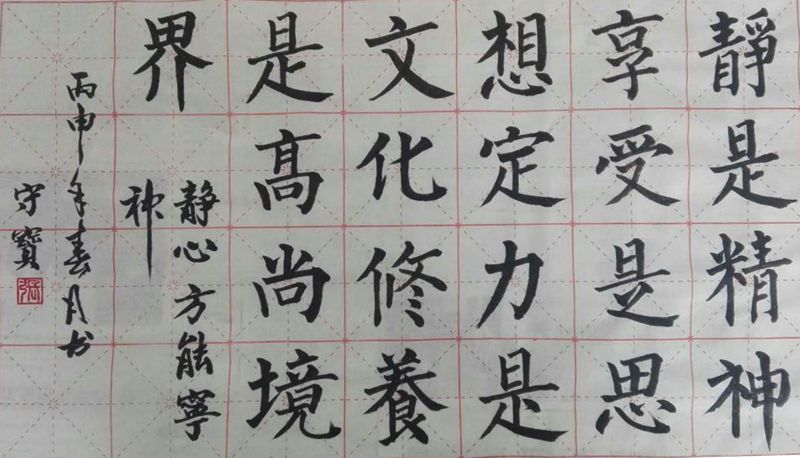 靜是精神
享受是思
想定力是
文化修養
是高尚境
界
静心方能寧
神
丙申年春月书
守寳
張